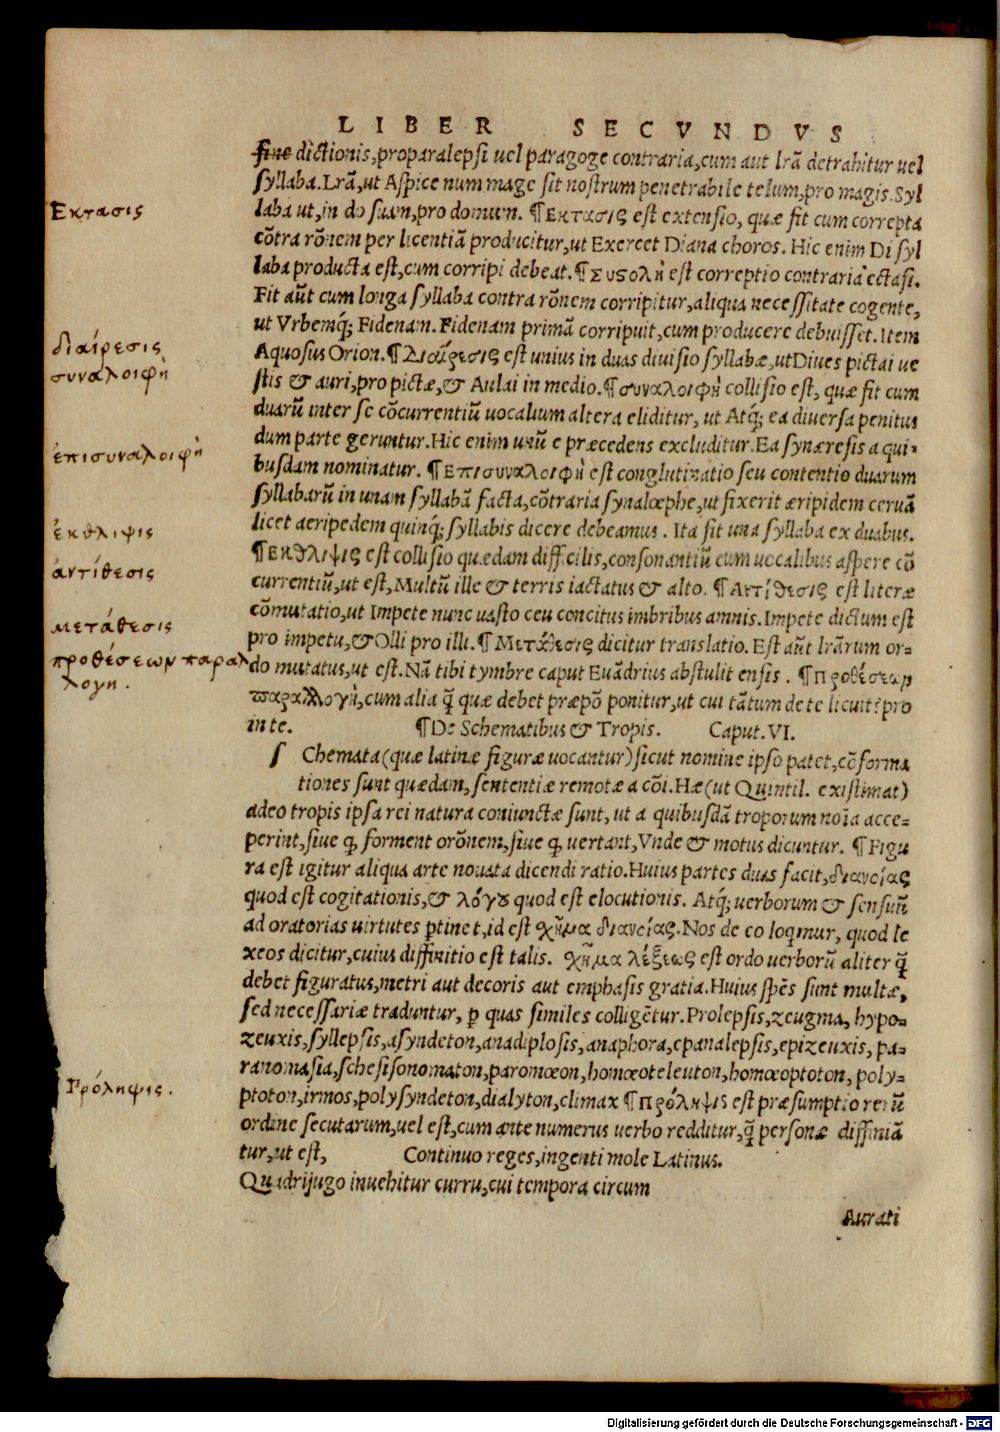 LIBER SECVNDVS
fine dictionis,proparalepsi uel paragoge contraria,cum aut lrã detrahitur uel
syllaba.Lrã,ut Aspice num mage sit nostrum penetrabile telum,pro magis.Syl
laba ut,in do suam,pro domum. ¶Εκτασις est extensio, quæ fit cum correpta
cõtra rõnem per licentiã producitur,ut Exercet Diana choros. Hic enim Di syl
laba producta est,cum corripi debeat.¶Συςολὴ est correptio contraria ectasi.
Fit aũt cum longa syllaba contra rõnem corripitur,aliqua necessitate cogente,
ut Vrbemq́; Fidenam.Fidenam primã corripuit,cum producere debuisset.Item
Aquosus Orion.¶Διαίρεσις est unius in duas diuisio syllabæ,utDiues pictai ue
stis & auri,pro pictæ,& Aulai in medio.¶συναλοιφὴ collisio est, quæ fit cum
duarũ inter se cõcurrentiũ uocalium altera eliditur, ut Atq́; ea diuersa penitus
dum parte geruntur.Hic enim unũ e præcedens excluditur.Ea synæresis a qui-
busdam nominatur. ¶Επισυναλοιφὴ est conglutinatio seu contentio duarum
syllabarũ in unam syllabã facta,cõtraria synalœphe,ut fixerit æripidem ceruã
licet aeripedem quinq́; syllabis dicere debeamus. Ita fit una syllaba ex duabus.
¶Εκθλιψις est collisio quædam difficilis,consonantiũ cum uocalibus aspere cõ
currentiũ,ut est,Multũ ille & terris iactatus & alto. ¶Αντίθεσις est literæ
cõmutatio,ut Impete nunc uasto ceu concitus imbribus amnis.Impete dictum est
pro impetu,&Olli pro illi.¶Μετάθεσις dicitur translatio.Est aũt lrãrum or-
do mutatus,ut est.Nã tibi tymbre caput Euãdrius abstulit ensis. ¶Προθέσεων
παραλλογὴ,cum alia q̃ quæ debet præpõ ponitur,ut cui tãtum de te licuit?pro
in te. ¶De Schematibus & Tropis. Caput.VI.
ſ Chemata(quæ latinæ figuræ uocantur)sicut nomine ipso patet,cõforma
tiones sunt quædam,sententiæ remotæ a cõi.Hæ(ut Quintil. existimat)
adeo tropis ipsa rei natura coniunctæ sunt, ut a quibusdã troporum noĩa acce-
perint,siue q, forment orõnem,siue q, uertant,Vnde & motus dicuntur. ¶Figu
ra est igitur aliqua arte nouata dicendi ratio.Huius partes duas facit,διανοίας
quod est cogitationis,& λόγου quod est elocutionis. Atq́; uerborum & sensuũ
ad oratorias uirtutes ꝑtinet,id est χῆμα διανοίας.Nos de eo loq̃mur, quod le
xeos dicitur,cuius diffinitio est talis. χῆμα λέξεως est ordo uerborũ aliter q̃
debet figuratus,metri aut decoris aut emphasis gratia.Huius spẽs sunt multæ,
sed necessariæ traduntur, ꝑ quas similes colligẽtur.Prolepsis,zeugma, hypo-
zeuxis,syllepsis,asyndeton,anadiplosis,anaphora,epanalepsis,epizeuxis, pa-
ranomasia,schesisonomaton,paromœon,homœoteleuton,homœoptoton, poly-
ptoton,irmos,polysyndeton,dialyton,climax ¶Πρόληψις est præsumptio rerũ
ordine secutarum,uel est,cum ante numerus uerbo redditur,q̃ personæ diffiniã
tur,ut est, Continuo reges,ingenti mole Latinus.
Quadrijugo inuehitur curru,cui tempora circum
Aurati
Εκτασις
διαίρεσις
συναλοιφὴ
ἐπισυναλοιφὴ
ἐκθλιψις
ἀντίθεσις
μετάθεσις
προθέσεων παραλ
λογη.
Πρόληψις.
Digitalisierung gefördert durch die Deutsche Forschungsgemeinschaft - DFG